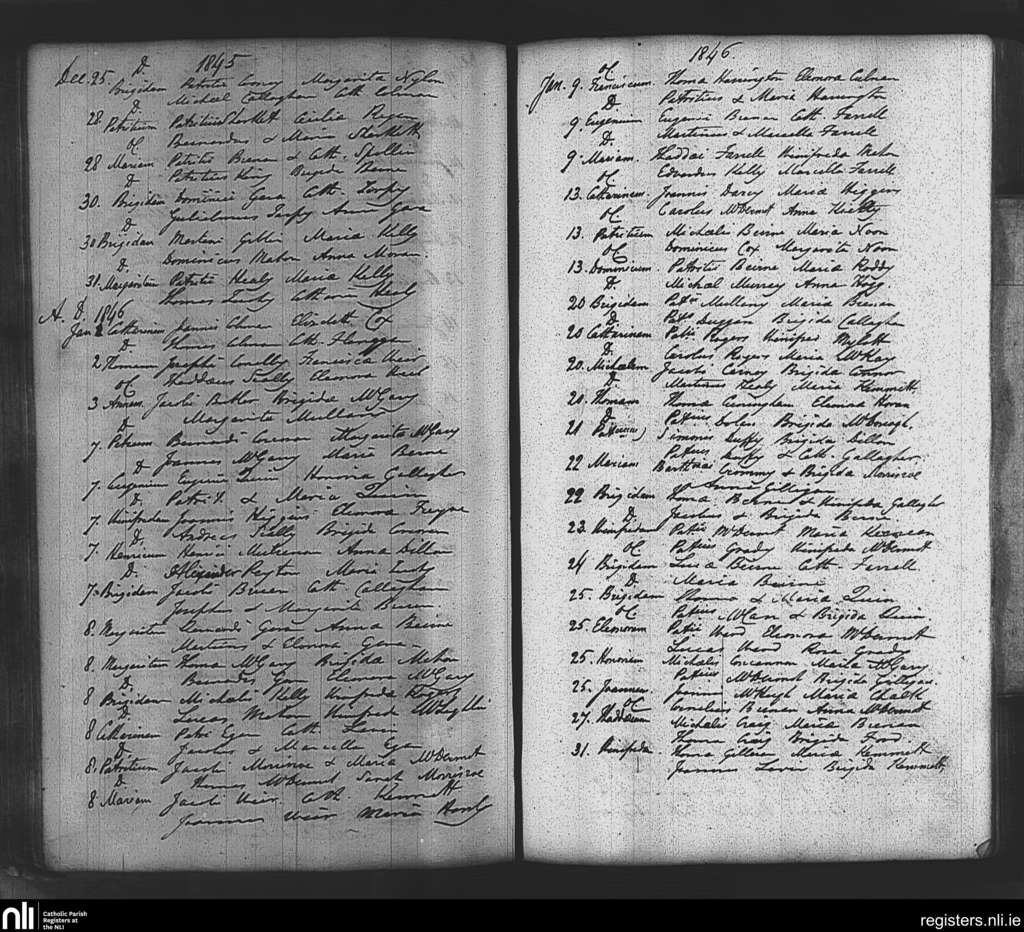 1845
Dec. 25 D. Brigidam Patritii Conry Margarita Nylon
Michael Callaghan Cath. Colman
28. D. Patritium Patritius Cicilia Regan
Bernardus & Maria
28 oC Mariam Patritii Brenan & Cath. Spellin
Patritius King Brigida Beirne
30. D. Brigidam Dominici Gara Cath. Torpy
Gulielmus Torpy Anna Gara
30 D. Brigidam Martini Maria Kelly
Dominicus Mahon Anna Moran
31. D. Margaritam Patritii Healy Maria Kelly
Thomas Healy
A. D. 1846
Jan Catherinam Joannis Elizabeth Cox
Thomas Cath. Flanagan
2 D. Thomam Josephi Conolly Francisca Weir
Thaddaeus Scally Eleonora
3 oC Annam Jacobi Butler Brigida McGary
Margarita Mullany
7. D Petrum Bernardi Margarita McGary
Joannes McGary Maria Beirne
7. D Eugenium Eugenii Quin Honoria Gallagher
& Maria Quin
7. D. Winifredam Joannis Higgins Eleonora Freyne
Andreas Scally Brigida
7. D. Henricum Henrici Anna Dillon
Alexander Peyton Maria
7. D. Brigidam Jacobi Brenan Cath. Callaghan
Joseph & Margarita
8. Margaritam Bernardi Gara Anna Beirne
Martinus & Eleonora Gara
8. Margaritam Thoma McGary Brigida Mahon
Bernardus Eleonora McGary
8 D. Brigidam Michaelis Kelly Winifreda Rogers
Lucas Mahon Winifreda McLoghlin
8 D. Catherinam Patrii Egan Cath.
Jacobus & Marcella Egan
8. D. Patritium Jacobi Morisroe & Maria McDermot
Thomas McDermot Sarah Morisroe
8 D Mariam Jacobi Weir Cath. Kemmett
Joannes Weir Maria
1846.
Jan. 9. oC Franciscum Thoma Harrington Eleonora Culnan
Patritius & Maria Harrington
9. D. Eugenium Eugenii Brenan Cath. Farrell
Martinus & Marcella Farrell
9 D. Mariam. Thaddai Farrell Winifreda Mahon
Edvardus Kelly Marcella Farrell
13. oC. Catherinam. Joannis Darcy Maria Higgins
Carolus McDermot Anna Kielty
13. oC. Patritium Michaelis Beirne Maria Noon
Dominicus Cox Margarita Noon
13. oC Dominicum. Patritii Beirne Maria Roddy
Michael Murray Anna
20 D Brigidam Patrii Mullany Maria Brenan
Duggan Brigida Callaghan
20 D Catherinam Patrii Rogers Winifred
Carolus Rogers Maria McKay
20. D. Michaelem Jacobi Carney Brigida Connor
Martinus Healy Maria Kemmett
20. D Thomam Thoma Cuningham Eleonora Horan
Patrius Brigida McDonogh.
21 D. Simonis Duffy Brigida Dillon
Patrius Duffy & Cath. Gallagher
22 Mariam Barthmai Crommy & Brigida Morisroe
Anna Gilligan
22. Brigidam Thoma Beirne & Winifreda Gallagher
Jacobus & Brigida Beirne.
23. D. Winifredam Patrii McDermot Maria
Patrius Grady Winifreda McDermot
24 oC Brigidam Luca Beirne Cath. Farrell
Maria Beirne
25. D. Brigidam Thoma & Maria Quin
Patrius & Brigida Quin
25. oC. Eleonoram Patrii Ward Eleonora McDermot
Lucas Ward Rosa Grady
25. Honoriam Michaelis Concannon Maria McGary
Patrius McDermot Brigida Gilligan
25. Joannem. Joannis McHugh Maria
Cornelius Brenan Anna McDermot
27. oC Thaddaeum Michaelis Craig Maria Brenan
Thoma Craig Brigida Ford
31. Winifreda. Thoma Gilleran Maria Kemmett
Joannes Lavin Brigida Kemmett
nli
Catholic Parish
Registers at
the NLI
registers.nli.ie